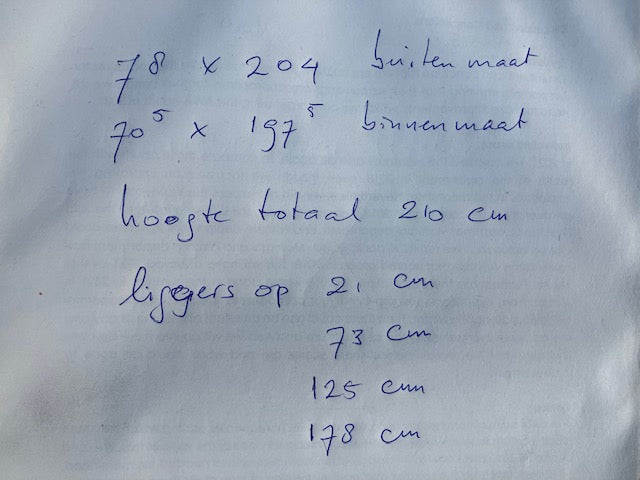 78 x 204 buitenmaat
70⁵ x 197⁵ binnenmaat
hoogte totaal 210 cm
liggers op 21 cm
73 cm
125 cm
178 cm